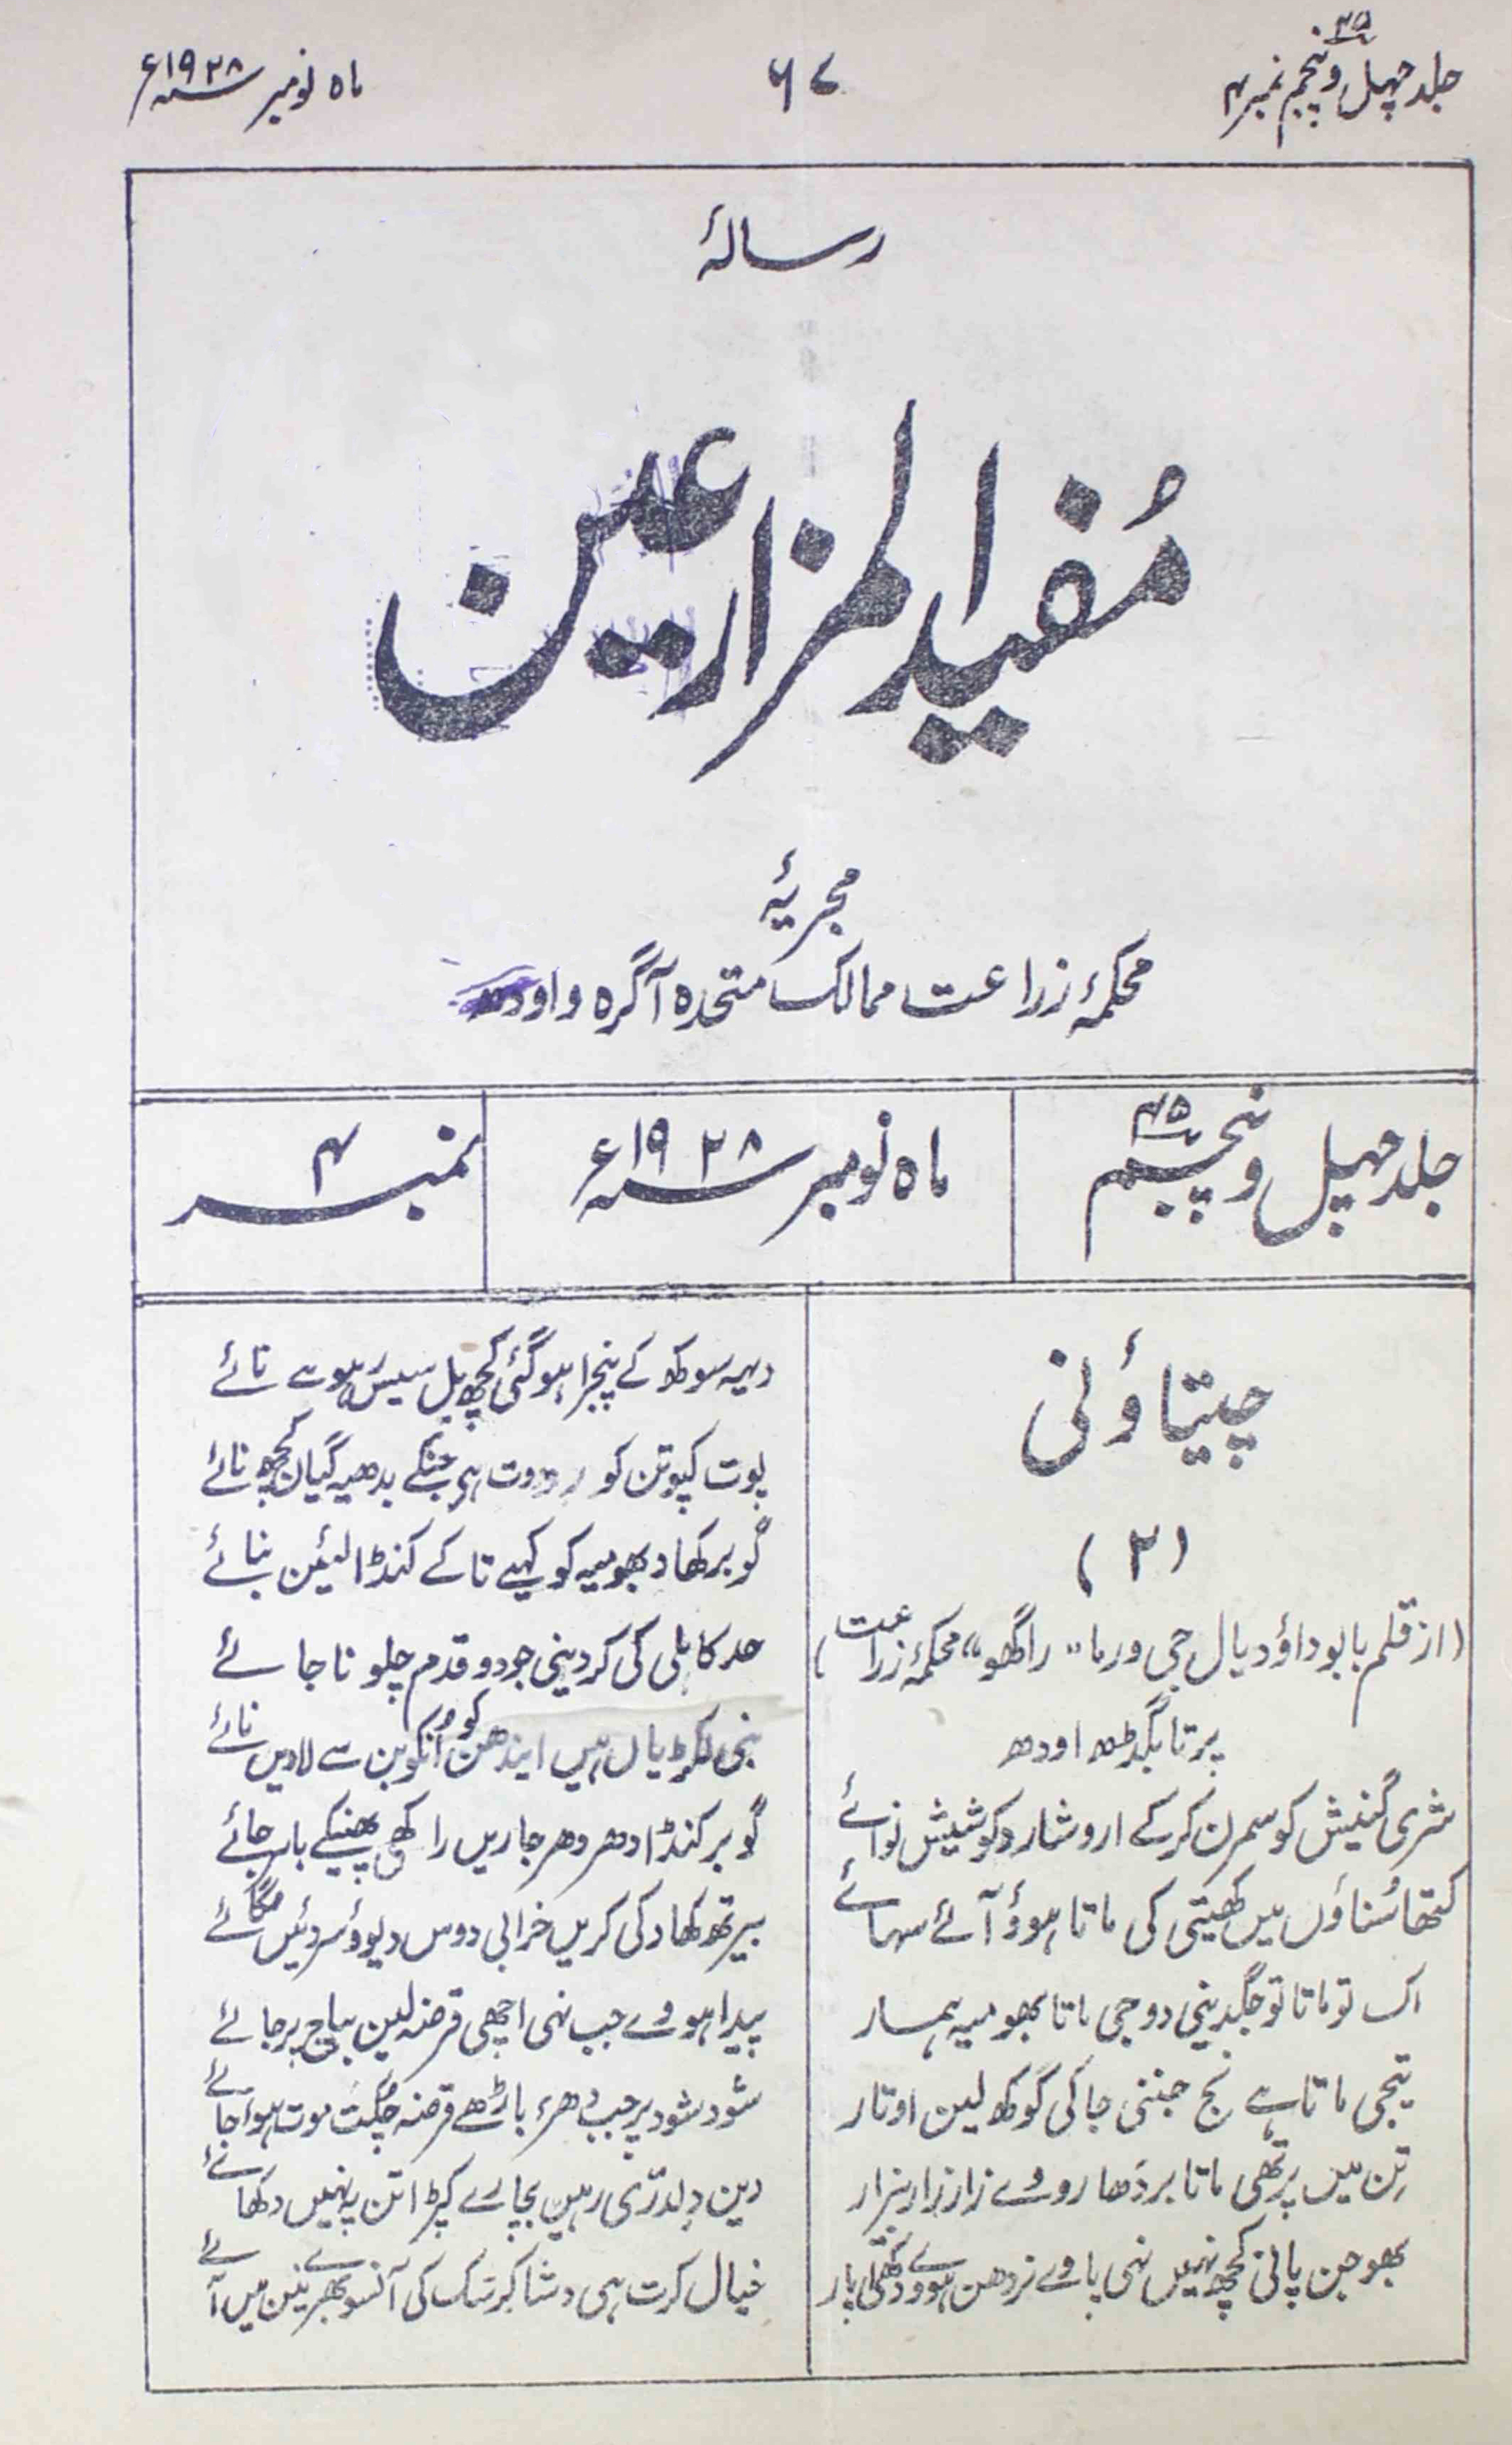 جلد چہل و پنجم ۴۵ نمبر ۴
۶۷
ماہ نومبر سنہ ۱۹۲۸ء
رسالۂ
مُفید المزارعین
مجریۂ
محکمۂ زراعت ممالک متحدہ آگرہ و اودھ
جلد چہل و پنجم ۴۵
ماہ نومبر سنہ ۱۹۲۸ء
نمبر ۴
چیتاؤنی
(۲)
(از قلم بابو داؤ دیال جی ورما "راگھو" محکمۂ زراعت)
پرتابگڈھ اودھ
شری گنیش کو سمرن کرکے ارو شارد کو شیش نوائے
کتھا سُناؤں میں کھیتی کی ماتا ہوؤ آئے سہائے
اک تو ماتا تو جگدینی دوجی ماتا بھومیہ ہمار
تیجی ماتا ہے نج جننی جاکی گوکھ لین اوتار
تِن میں پرتھی ماتا بردھا رووے زار زار بیزار
بھوجن پانی کچھ نہیں نہی پاوے نردھن ہووے دکھی اپار
دیہہ سوکھ کے پنجرا ہوگئی کچھ بل سیس ہوسے نائے
پوت کپوتن کو رووت ہی جنکے بدھیہ گیان کچھ نائے
گوبر کھاد بھومیہ کو کہیے تاکے کنڈا لیئن بنائے
حد کاہلی کی کردینی جو دو قدم چلو نا جائے
نجی لکڑیاں ہیں ایندھن کو اُنکو بن سے لادیں نائے
گوبر کنڈا دھر دھر جاریں راکھ پھینکے باہر جائے
بیرتھ کھاد کی کریں خرابی دوس دیوؤ سر دئیں لگائے
پیدا ہووے جب نہی اچھی قرضہ لین بیاج پر جائے
شود شود پر جب دھر باڑھے قرضہ چکت موت ہو جائے
دین دلدرّی رہین بچارے کپڑا تن پہ نہیں دکھائے
خیال کرت ہی دشا کرشک کی آنسو بھرے نین میں آئے